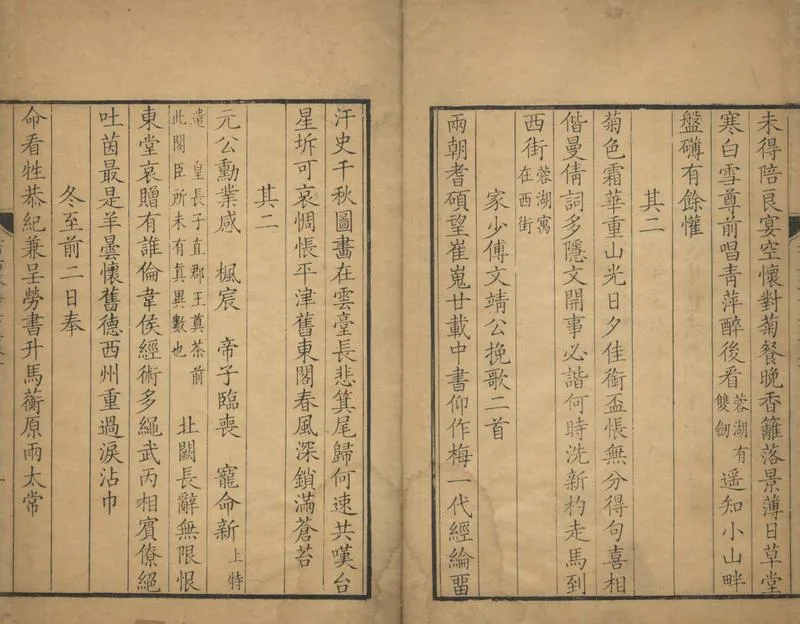 未得陪良宴空懷對菊餐晚香籬落景薄日草堂
寒白雪尊前唱靑萍醉後看蓉湖有雙劒遥知小山畔
盤礴有餘懽
其二
菊色霜華重山光日夕佳銜盃悵無分得句喜相
偕曼倩詞多隱文開事必諧何時洗新杓走馬到
西街蓉湖寓在西街
家少傅文靖公挽歌二首
兩朝耆碩望崔嵬廿載中書仰作梅一代經綸畱
汗史千秋圖畫在雲臺長悲箕尾歸何速共嘆台
星坼可哀惆悵平津舊東閣春風深鎖滿蒼苔
其二
元公勳業感楓宸帝子臨喪寵命新上特
遣皇長子直郡王奠茶前此閣臣所未有真異數也北闕長辭無限恨
東堂哀贈有誰倫韋侯經術多繩武丙相賓僚絕
吐茵最是羊曇懷舊德西州重過淚沾巾
冬至前二日奉
命看牲恭紀兼呈勞書升馬衡原兩太常